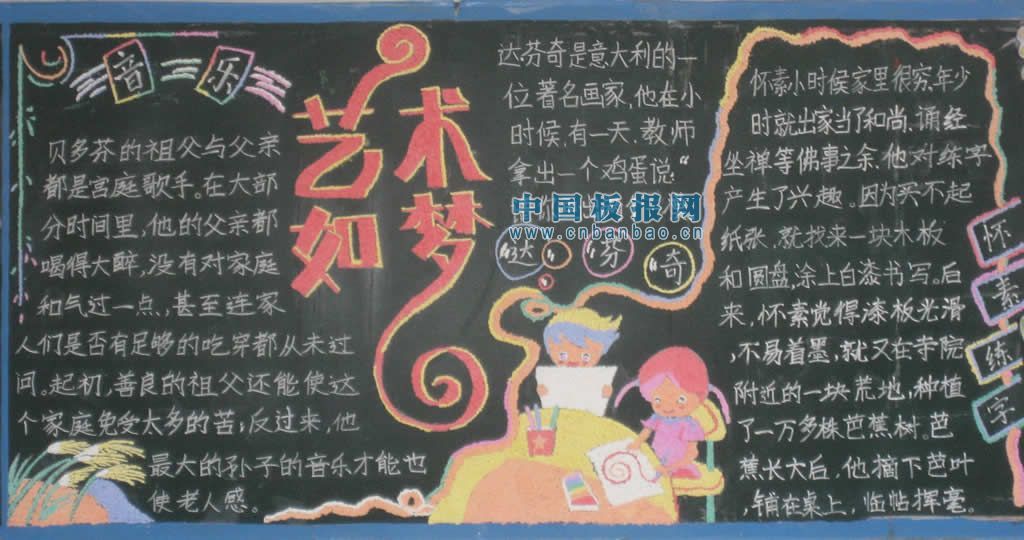 音乐
贝多芬的祖父与父亲
都是宫庭歌手。在大部
分时间里，他的父亲都
喝得大醉，没有对家庭
和气过一点，甚至连家
人们是否有足够的吃穿都从未过
问。起初，善良的祖父还能使这
个家庭免受太多的苦；反过来，他
最大的孙子的音乐才能也
使老人感。
艺术
如梦
达芬奇是意大利的一
位著名画家，他在小
时候，有一天，教师
拿出一个鸡蛋说“
中国板报网
www.cnbanbao.cn
达芬奇
怀素小时候家里很穷，年少
时就出家当了和尚，诵经
坐禅等佛事之余，他对练字
产生了兴趣。因为买不起
纸张，就找来一块木板
和圆盘，涂上白漆书写。后
来，怀素觉得漆板光滑
，不易着墨，就又在寺院
附近的一块荒地，种植
了一万多株芭蕉树。芭
蕉长大后，他摘下芭叶
，铺在桌上，临帖挥毫。
怀素练字